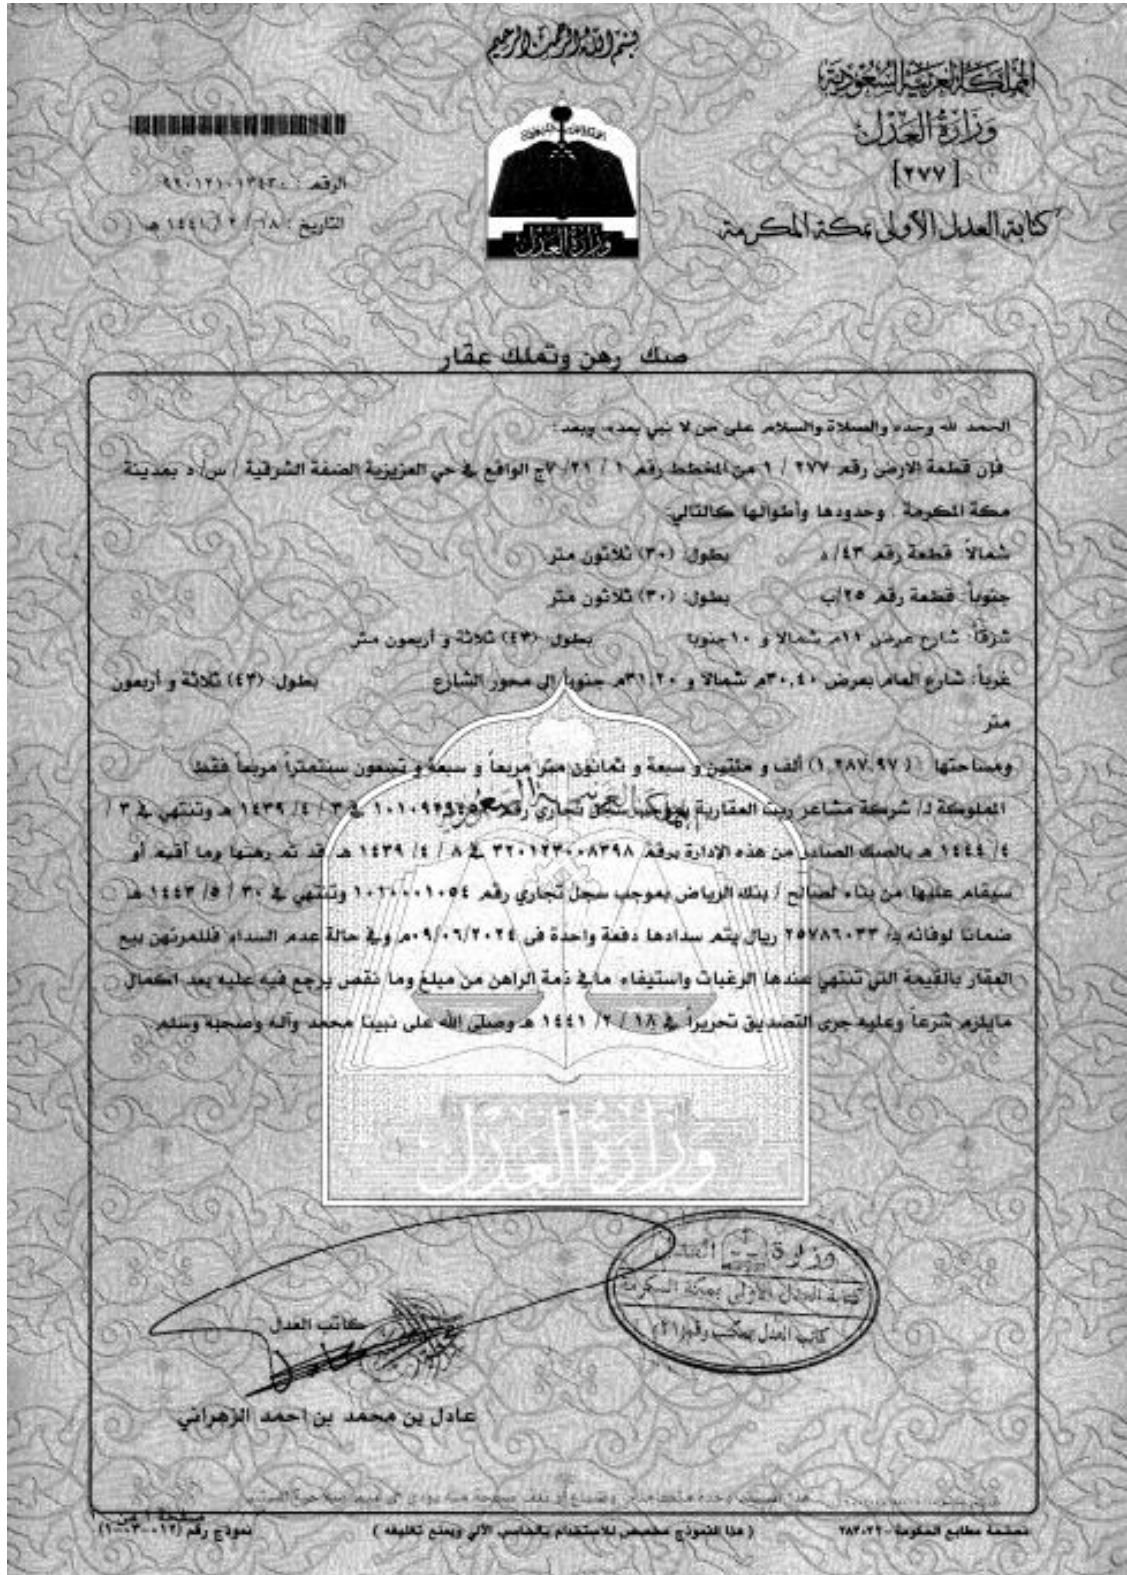 بسم الله الرحمن الرحيم
المملكة العربية السعودية
وزارة العدل
[٢٧٧]
كتابة العدل الأولى بمكة المكرمة
وزارة العدل
الرقم : ٩٢٠١٢١٠١٣٤٣٠
التاريخ : ١٨ / ٢ / ١٤٤١ هـ
صك رهن وتملك عقار
الحمد لله وحده والسلاة والسلام على من لا نبي بعده، وبعد :
فإن قطعة الارض رقم ٢٧٧ / ١ من المخطط رقم ١ / ٢١ / ٧ج الواقع في حي العزيزية الضفة الشرقية / س/ د بمدينة
مكة المكرمة . وحدودها وأطوالها كالتالي:
شمالاً: قطعة رقم ٤٣/ د بطول: (٣٠) ثلاثون متر
جنوباً: قطعة رقم ٢٥/ب بطول: (٣٠) ثلاثون متر
شرقاً: شارع عرض ١١م شمالا و ١٠جنوبا بطول: (٤٣) ثلاثة و أربعون متر
غرباً: شارع العام بعرض ٣٠,٤٠م شمالا و ٣١,٢٠م جنوبا إلى محور الشارع بطول: (٤٣) ثلاثة و أربعون
متر
ومساحتها ( ١,٢٨٧,٩٧) ألف و مئتين و سبعة و ثمانون مترا مربعاً و سبعة و تسعون سنتمتراً مربعاً فقط
المملوكة لـ/ شركة مشاعر ريت العقارية بموجب سجل تجاري رقم في ٣ / ٤/ ١٤٣٩ هـ وتنتهي في ٣ /
٤/ ١٤٤٤ هـ بالصك الصادر من هذه الإدارة برقم ٣٢٠١٢٣٠٠٨٣٩٨ في ٨ / ٤/ ١٤٣٩ هـ قد تم رهنها وما أقيم أو
سيقام عليها من بناء لصالح / بنك الرياض بموجب سجل تجاري رقم ١٠١٠٠٠١٠٥٤ وتنتهي في ٣٠ / ٥/ ١٤٤٣ هـ
ضمانا لوفائه بـ/ ٢٥٧٨٦٠٣٣ ريال يتم سدادها دفعة واحدة فى ٠٩/٠٦/٢٠٢٤م وفي حالة عدم السداد فللمرتهن بيع
العقار بالقيمة التي تنتهي عندها الرغبات واستيفاء مافي ذمة الراهن من مبلغ وما نقص يرجع فيه عليه بعد اكمال
مايلزم شرعاً وعليه جرى التصديق تحريراً في ١٨ / ٢/ ١٤٤١ هـ وصلى الله على نبينا محمد وآله وصحبه وسلم.
وزارة العدل
وزارة العدل
كتابة العدل الأولى بمكة المكرمة
كاتب العدل بمكتب رقم (٢١)
كاتب العدل
عادل بن محمد بن احمد الزهراني
صفحة ١ من
مصلحة مطابع الحكومة - ٢٨٣٠٢٢
( هذا النموذج مخصص للاستخدام بالحاسب الآلي ويمنع تغليفه )
نموذج رقم (١٢-٠٣-٠١)